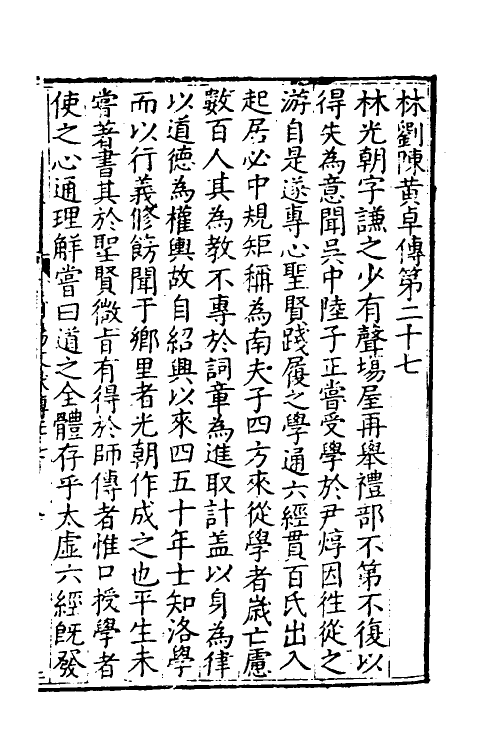 林劉陳黃卓傳第二十七
林光朝字謙之少有聲場屋再舉禮部不第不復以
得失為意聞吳中陸子正嘗受學於尹焞因徃從之
游自是遂專心聖賢踐履之學通六經貫百氏出入
起居必中規矩稱為南夫子四方來從學者歲亡慮
數百人其為教不專於詞章為進取計盖以身為律
以道德為權輿故自紹興以來四五十年士知洛學
而以行義修飭聞于鄉里者光朝作成之也平生未
嘗著書其於聖賢微旨有得於師傳者惟口授學者
使之心通理解嘗曰道之全體存乎太虛六經旣發